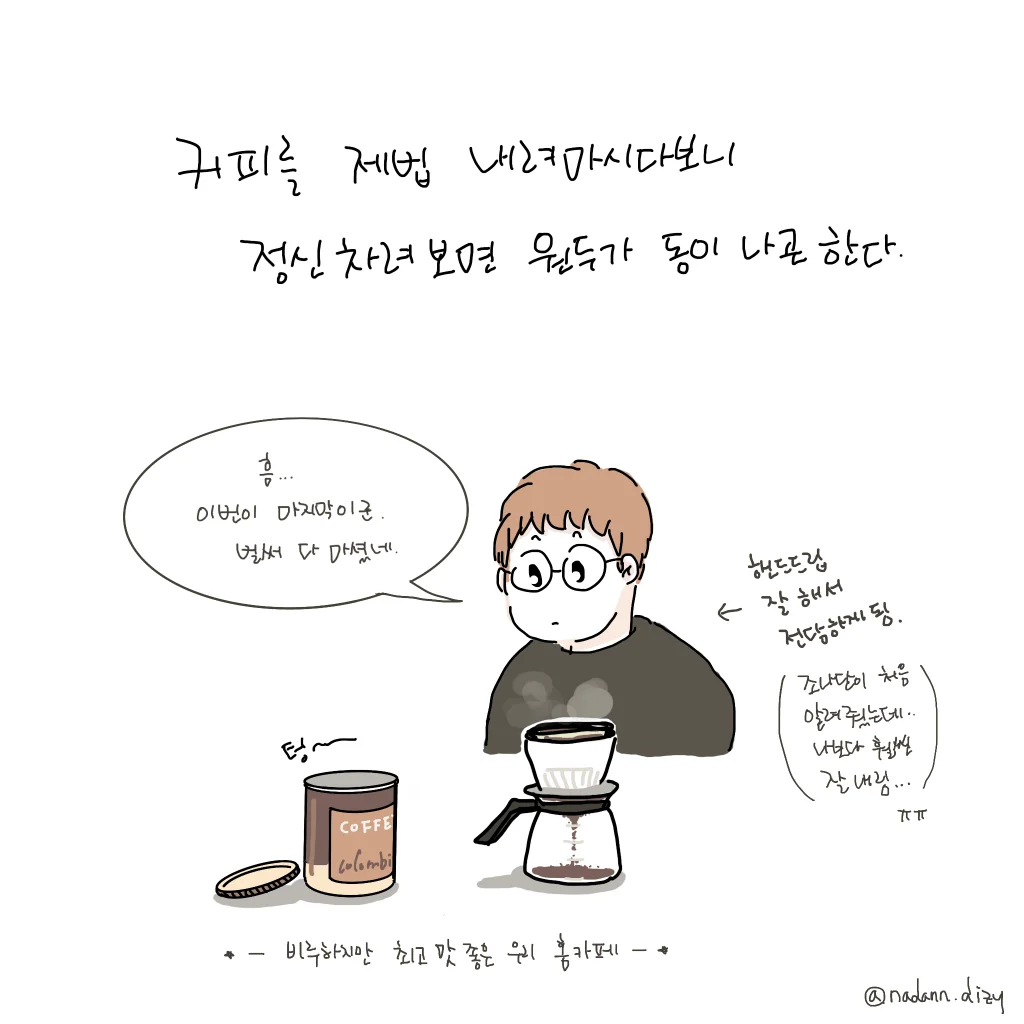 커피를 제법 내려마시다보니
정신차려보면 원두가 동이 나곤 한다.
흠...
이번이 마지막이군.
벌써 다 마셨네.
핸드드립
잘 해서
전담하게 됨.
(조나단이 처음
알려줬는데..
나보다 훨씬
잘 내림...)
ㅠㅠ
텅~
COFFE
colombi
• — 비루하지만 최고 맛 좋은 우리 홈카페 — •
@nadann.dizy